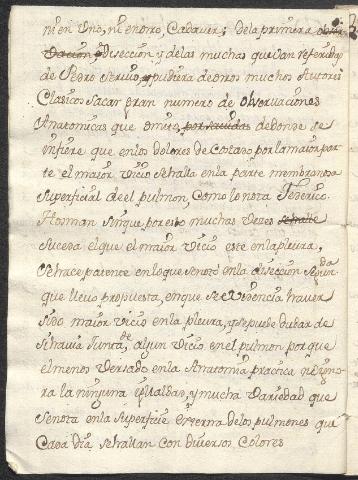 ni en Uno, ni en otro, Cadaver; de la primera obser
vacion Diseccion y de las muchas que van referidas
de Pedro Servio, y pudiera de otros muchos Autores
Clasicos sacar gran numero de observaciones
Anatomicas que omito, por sauidas de donde se
infiere que en los dolores de Costado por la maior par
te el maior Vicio se halla en la parte membranosa
superficial de el pulmon, Como lo nota Federico
Hofman sin que por esto muchas vezes se halle
suceda el que el maior Vicio este en la pleura,
se hace patente en lo que se noto en la diseccion segunda
que lleuo propuesta, en que se evidencia hauer
sido maior vicio en la pleura, y se puede dudar de
si hauia Junta.te algun Vicio en el pulmon por que
el menos Versado en la Anatomia practica no igno
ra la ninguna igualdad, y mucha Variedad que
se nota en la superficie externa de los pulmones que
Cada dia se hallan con diversos Colores